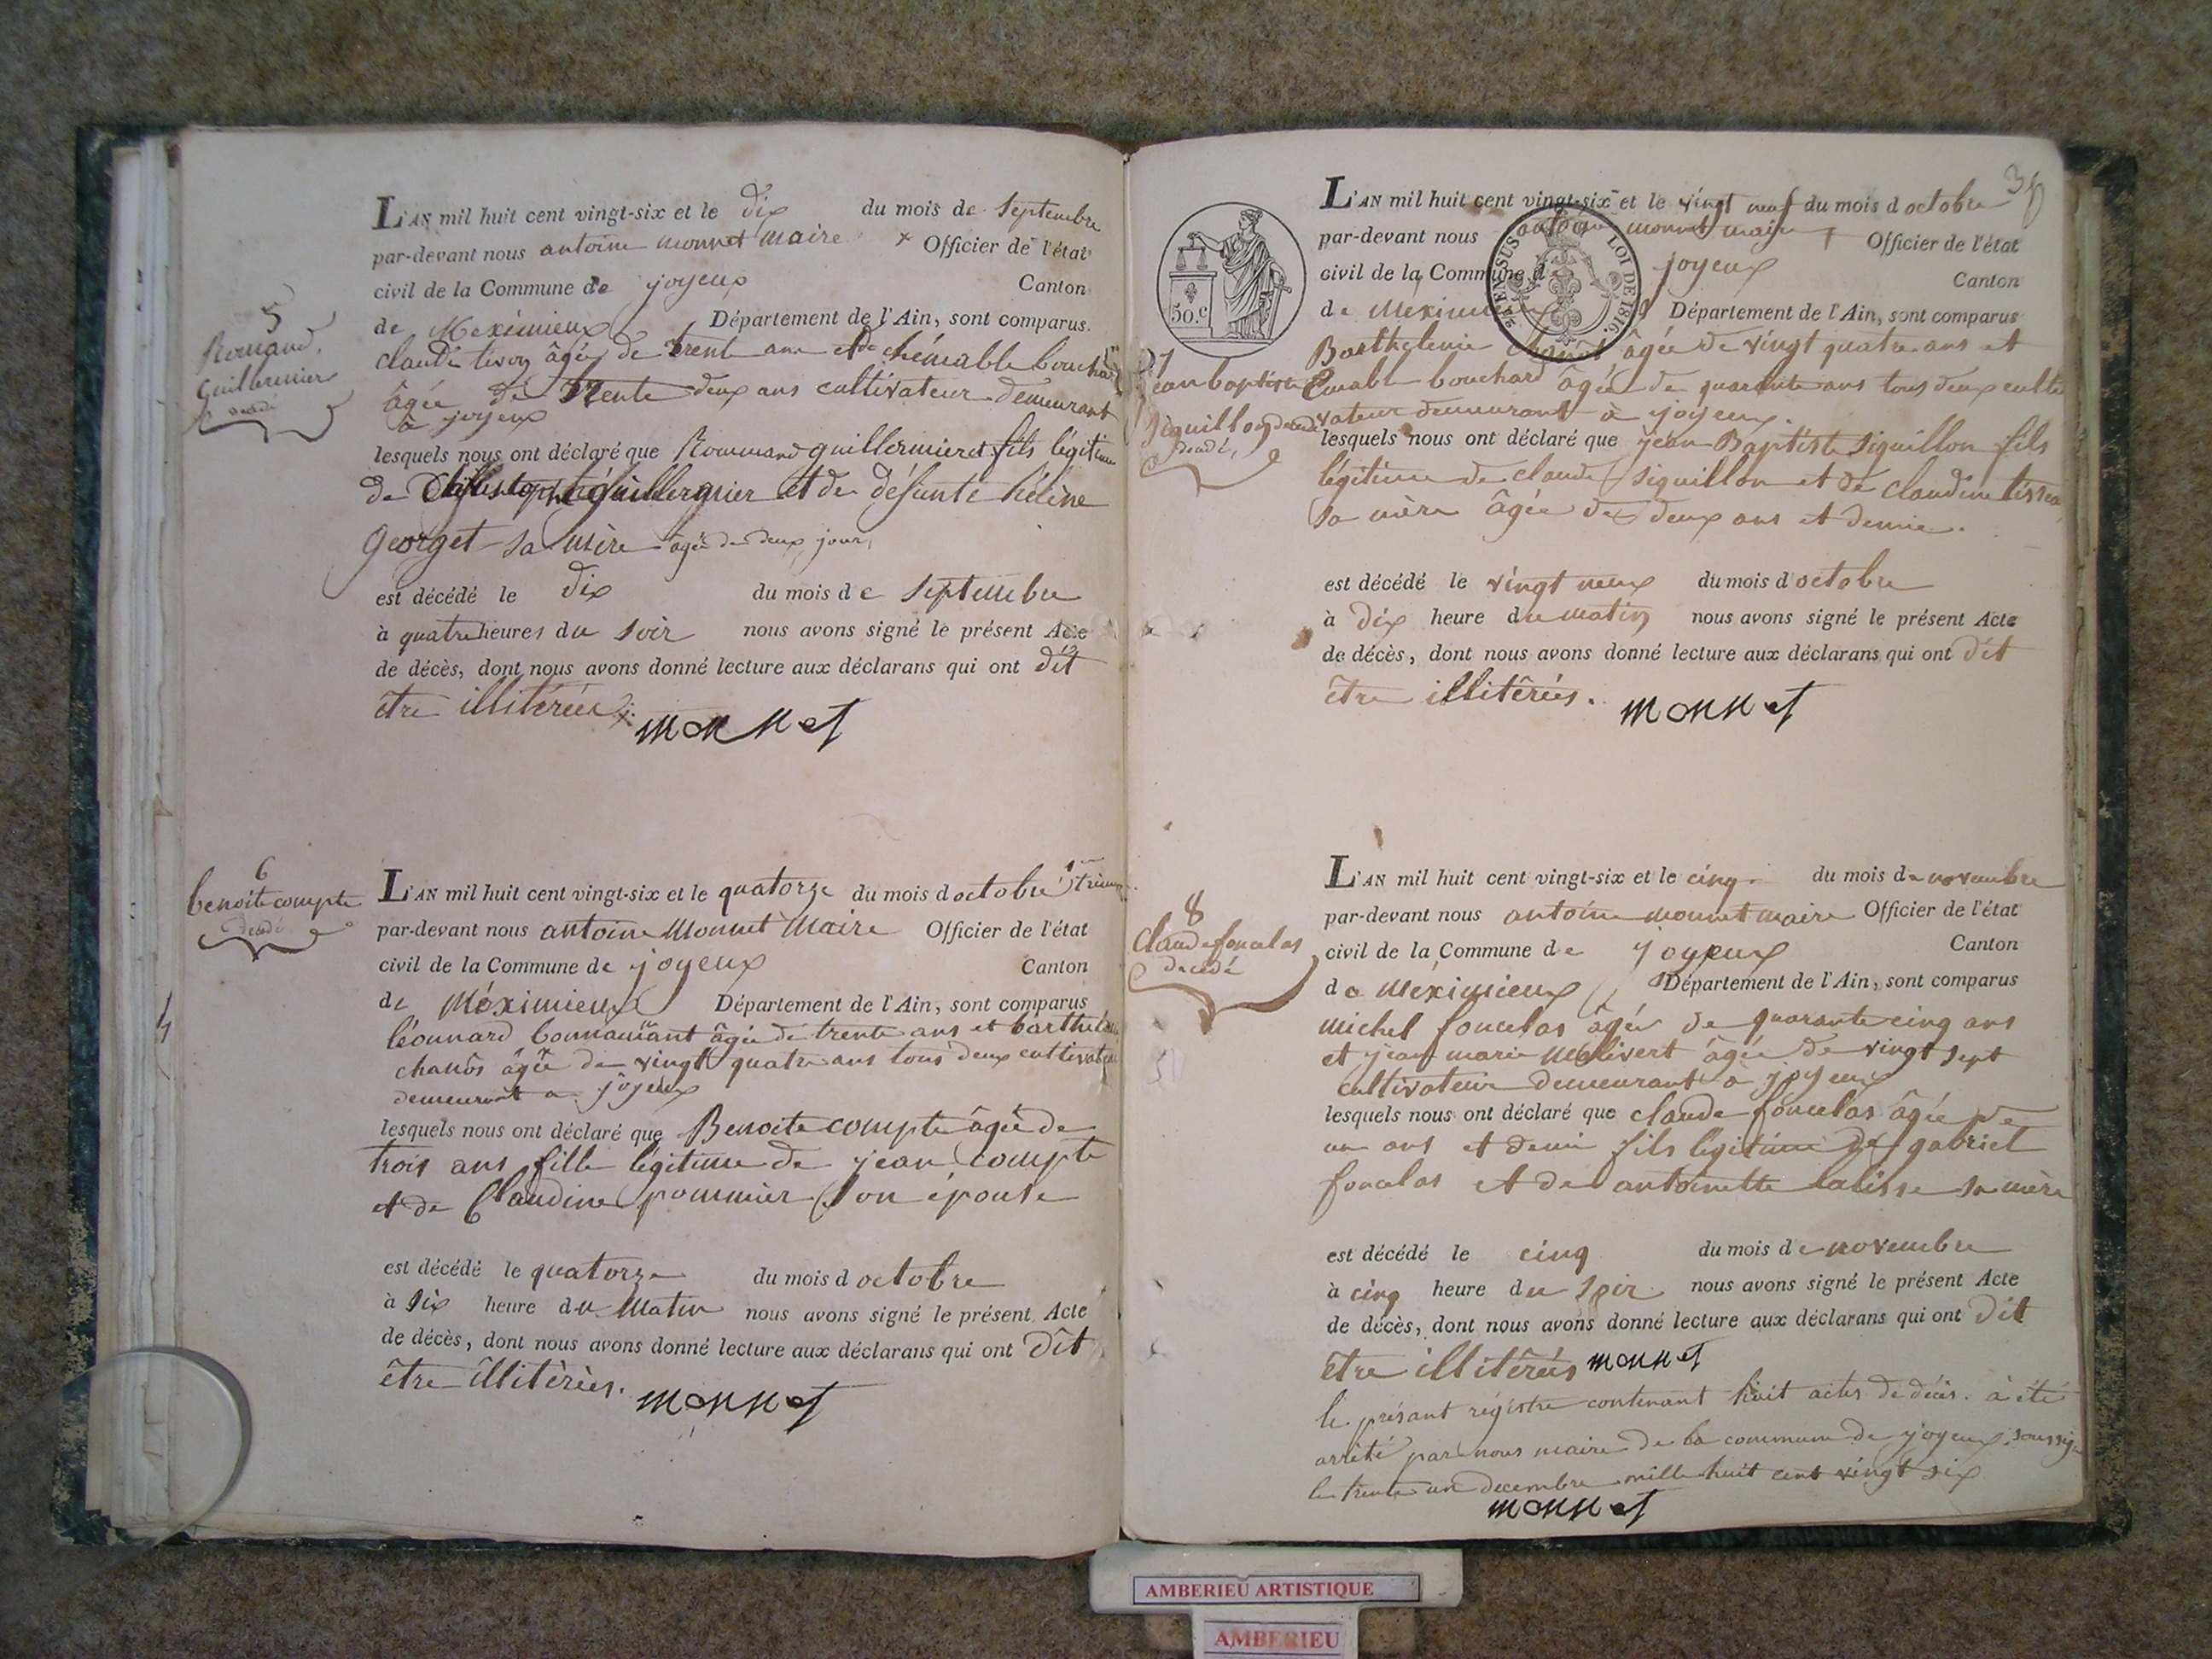 5
Romand
Guillermier
décédé
L'AN mil huit cent vingt-six et le dix du mois de septembre
par-devant nous antoine monnet maire Officier de l'état
civil de la Commune de joyeux Canton
de Meximieux Département de l'Ain, sont comparus
claude tivoy âgée de trente ans et de bouchard
âgée de trente deux ans cultivateur demeurant
a joyeux
lesquels nous ont déclaré que guillermier fils légitime
de guillermier et de défunte hélène
georget sa mère âgée de deux jour
est décédé le dix du mois de septembre
à quatre heures du soir nous avons signé le présent Acte
de décès, dont nous avons donné lecture aux déclarans qui ont dit
être illitérées
monnet
6
benoite compte
décédé
L'AN mil huit cent vingt-six et le quatorze du mois d octobre
par-devant nous antoine Monnet Maire Officier de l'état
civil de la Commune de joyeux Canton
de Méximieux Département de l'Ain, sont comparus
léonnard âgée de trente ans et
chanôs âgée de vingt quatre ans tous deux cultivateur
demeurant a joyeux
lesquels nous ont déclaré que Benoite compte âgée de
trois ans fille légitime de jean compte
et de Claudine pommier son épouse
est décédé le quatorze du mois d octobre
à six heure du Matin nous avons signé le présent Acte
de décès, dont nous avons donné lecture aux déclarans qui ont dît
être illitérées.
monnet
35
50.c
EN SUS LOI DE 1816.
7
jean baptiste
siguillon
décédé
L'AN mil huit cent vingt-six et le vingt neuf du mois d octobre
par-devant nous antoine monnet maire Officier de l'état
civil de la Commune de joyeux Canton
de Meximieux Département de l'Ain, sont comparus
Barthelemie âgée de vingt quatre ans et
bouchard âgée de quarante ans tous deux culti
vateur demeurant a joyeux
lesquels nous ont déclaré que jean Baptiste siguillon fils
légitime de claude siguillon et de claudine
sa mère âgée de deux ans et demie.
est décédé le vingt neux du mois d'octobre
à dix heure du matin nous avons signé le présent Acte
de décès, dont nous avons donné lecture aux déclarans qui ont dit
être illitérées.
monnet
8
Claude foncelas
décédé
L'AN mil huit cent vingt-six et le cinq du mois de novembre
par-devant nous antoine monnet maire Officier de l'état
civil de la Commune de joyeux Canton
de Méximieux Département de l'Ain, sont comparus
michel foncelas âgée de quarante cinq ans
et jean marie âgée de vingt sept
cultivateur demeurant a joyeux
lesquels nous ont déclaré que claude foncelas âgée de
un ans et demi fils légitime de gabriel
foncelas et de antoinette sa mère
est décédé le cinq du mois de novembre
à cinq heure du soir nous avons signé le présent Acte
de décès, dont nous avons donné lecture aux déclarans qui ont dit
être illitérées monnet
le présant régistre contenant huit actes de décès. à été
arrêté par nous maire de la commune de joyeux soussigné
le trente un decembre mille huit cent vingt six
monnet
AMBERIEU ARTISTIQUE
AMBERIEU